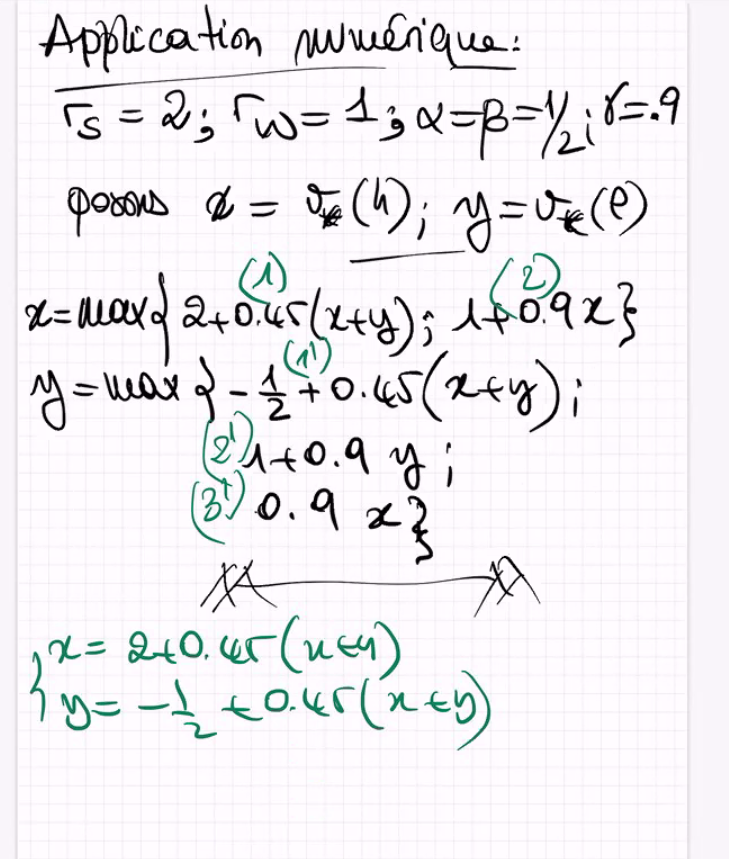 Application numérique:
r_s = 2; r_w = 1; α=β=1/2; γ=.9
posons x = v_*(h); y = v_*(e)
(1) (2)
x=max{2+0.45(x+y); 1+0.9x}
(1')
y=max{-1/2+0.45(x+y);
(2') 1+0.9 y;
(3') 0.9 x}
{x= 2+0.45(x+y)
y= -1/2+0.45(x+y)